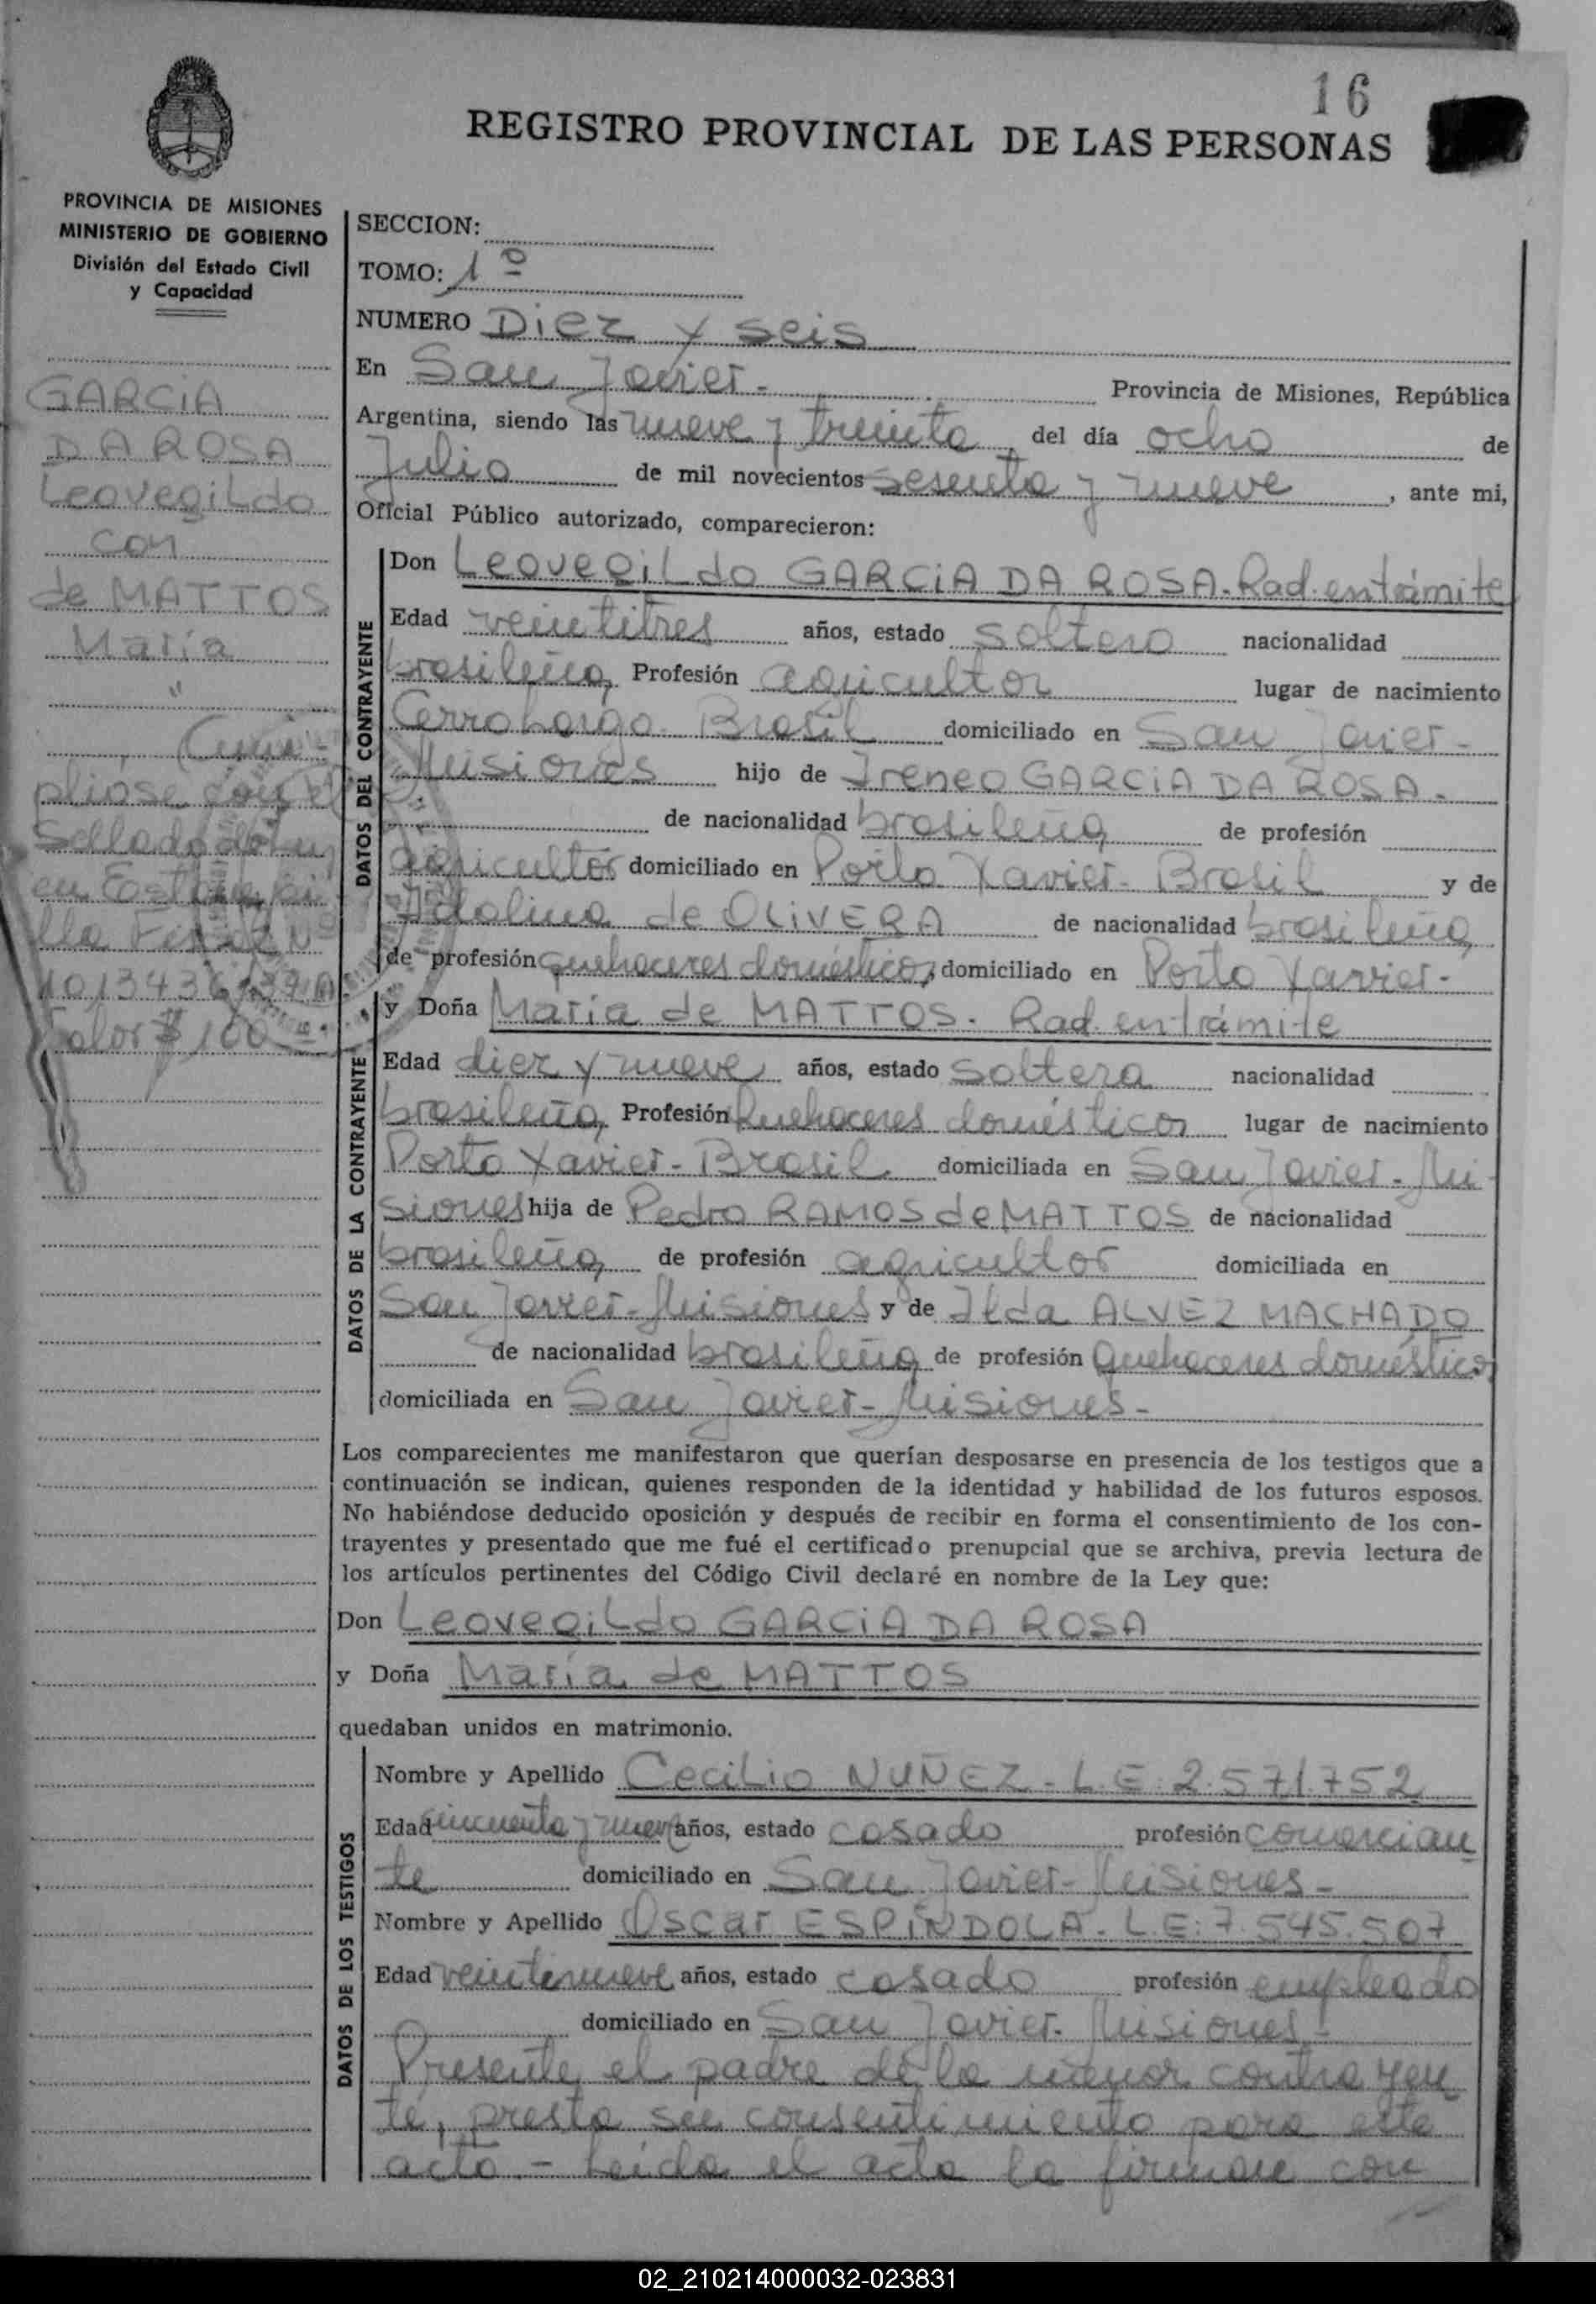 16
REGISTRO PROVINCIAL DE LAS PERSONAS
PROVINCIA DE MISIONES
MINISTERIO DE GOBIERNO
División del Estado Civil
y Capacidad
GARCIA
DA ROSA
Leovegildo
con
de MATTOS
María
"
Cum-
pliose con el
Sellado de Ley
en Estampi
lla Fiscal Nº
Valor $ 100
SECCION:
TOMO: 1º
NUMERO Diez y seis
En San Javier- Provincia de Misiones, República
Argentina, siendo las nueve y treinta del día ocho de
Julio de mil novecientos sesenta y nueve, ante mi,
Oficial Público autorizado, comparecieron:
DATOS DEL CONTRAYENTE
Don Leovegildo GARCIA DA ROSA. Rad. en trámite
Edad veintitres años, estado soltero nacionalidad
brasileña, Profesión agricultor lugar de nacimiento
Cerro Largo. Brasil domiciliado en San Javier-
Misiones hijo de Ireneo GARCIA DA ROSA.
de nacionalidad brasileña de profesión
agricultor domiciliado en Porto Xavier- Brasil y de
de OLIVERA de nacionalidad brasileña,
de profesión quehaceres domésticos, domiciliado en Porto Xavier-
DATOS DE LA CONTRAYENTE
y Doña María de MATTOS. Rad. en trámite
Edad diez y nueve años, estado soltera nacionalidad
brasileña, Profesión Quehaceres domésticos lugar de nacimiento
Porto Xavier- Brasil domiciliada en San Javier- Mi
siones hija de Pedro RAMOS de MATTOS de nacionalidad
brasileña, de profesión agricultor domiciliada en
San Javier- Misiones y de Ilda ALVEZ MACHADO
de nacionalidad brasileña de profesión Quehaceres domésticos,
domiciliada en San Javier- Misiones-
Los comparecientes me manifestaron que querían desposarse en presencia de los testigos que a
continuación se indican, quienes responden de la identidad y habilidad de los futuros esposos.
No habiéndose deducido oposición y después de recibir en forma el consentimiento de los con-
trayentes y presentado que me fué el certificado prenupcial que se archiva, previa lectura de
los artículos pertinentes del Código Civil declaré en nombre de la Ley que:
Don Leovegildo GARCIA DA ROSA
y Doña María de MATTOS
quedaban unidos en matrimonio.
DATOS DE LOS TESTIGOS
Nombre y Apellido Cecilio NUÑEZ- L.E: 2.571.752
Edad cincuenta y nueve años, estado casado profesión comercian
te domiciliado en San Javier- Misiones-
Nombre y Apellido Oscar ESPINDOLA- L.E: 7.545.507
Edad veintenueve años, estado casado profesión empleado
domiciliado en San Javier- Misiones-
Presente el padre de la menor contrayen
te, presta su consentimiento para este
acto.- Leída el acta la firman con
02_210214000032-023831